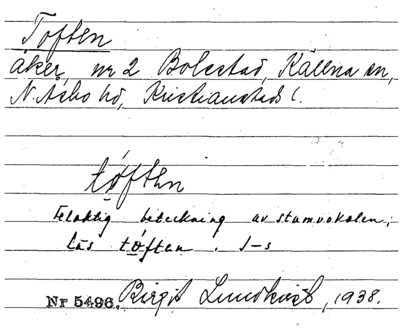 Toften
åker, nr 2 Bolestad, Källna sn,
N. Åsbo hd, Kristianstads l.
tóften
Felaktig beteckning av stamvokalen;
läs tóftan. I-s
Nr 5496. Birgit Lundkvist, 1938.